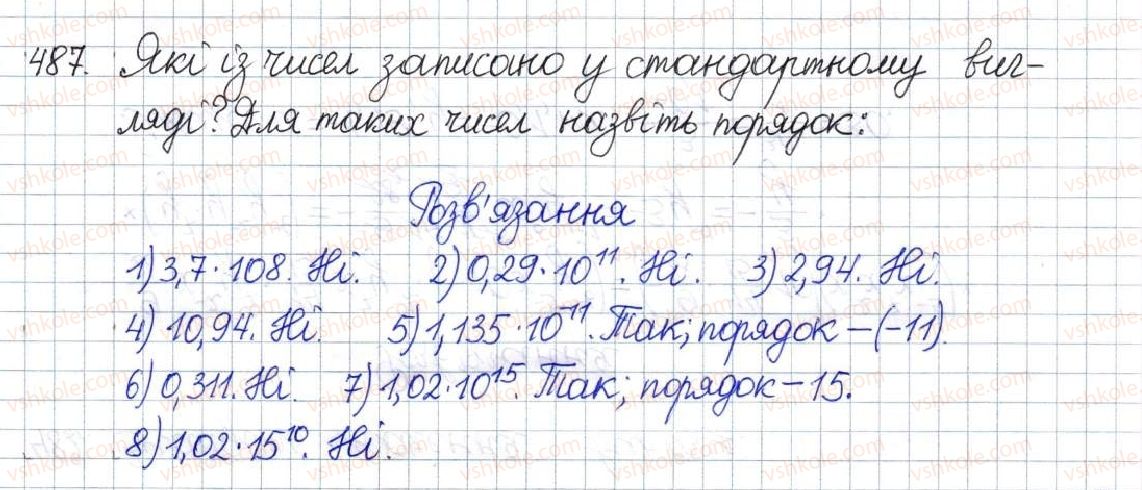 487. Які із чисел записано у стандартному виг-
ляді? Для таких чисел назвіть порядок:
Розв'язання
1) 3,7·108. Ні. 2) 0,29·10¹¹. Ні. 3) 2,94. Ні.
4) 10,94. Ні. 5) 1,135·10⁻¹¹. Так; порядок – (-11).
6) 0,311. Ні. 7) 1,02·10¹⁵. Так; порядок – 15.
8) 1,02·15¹⁰. Ні.